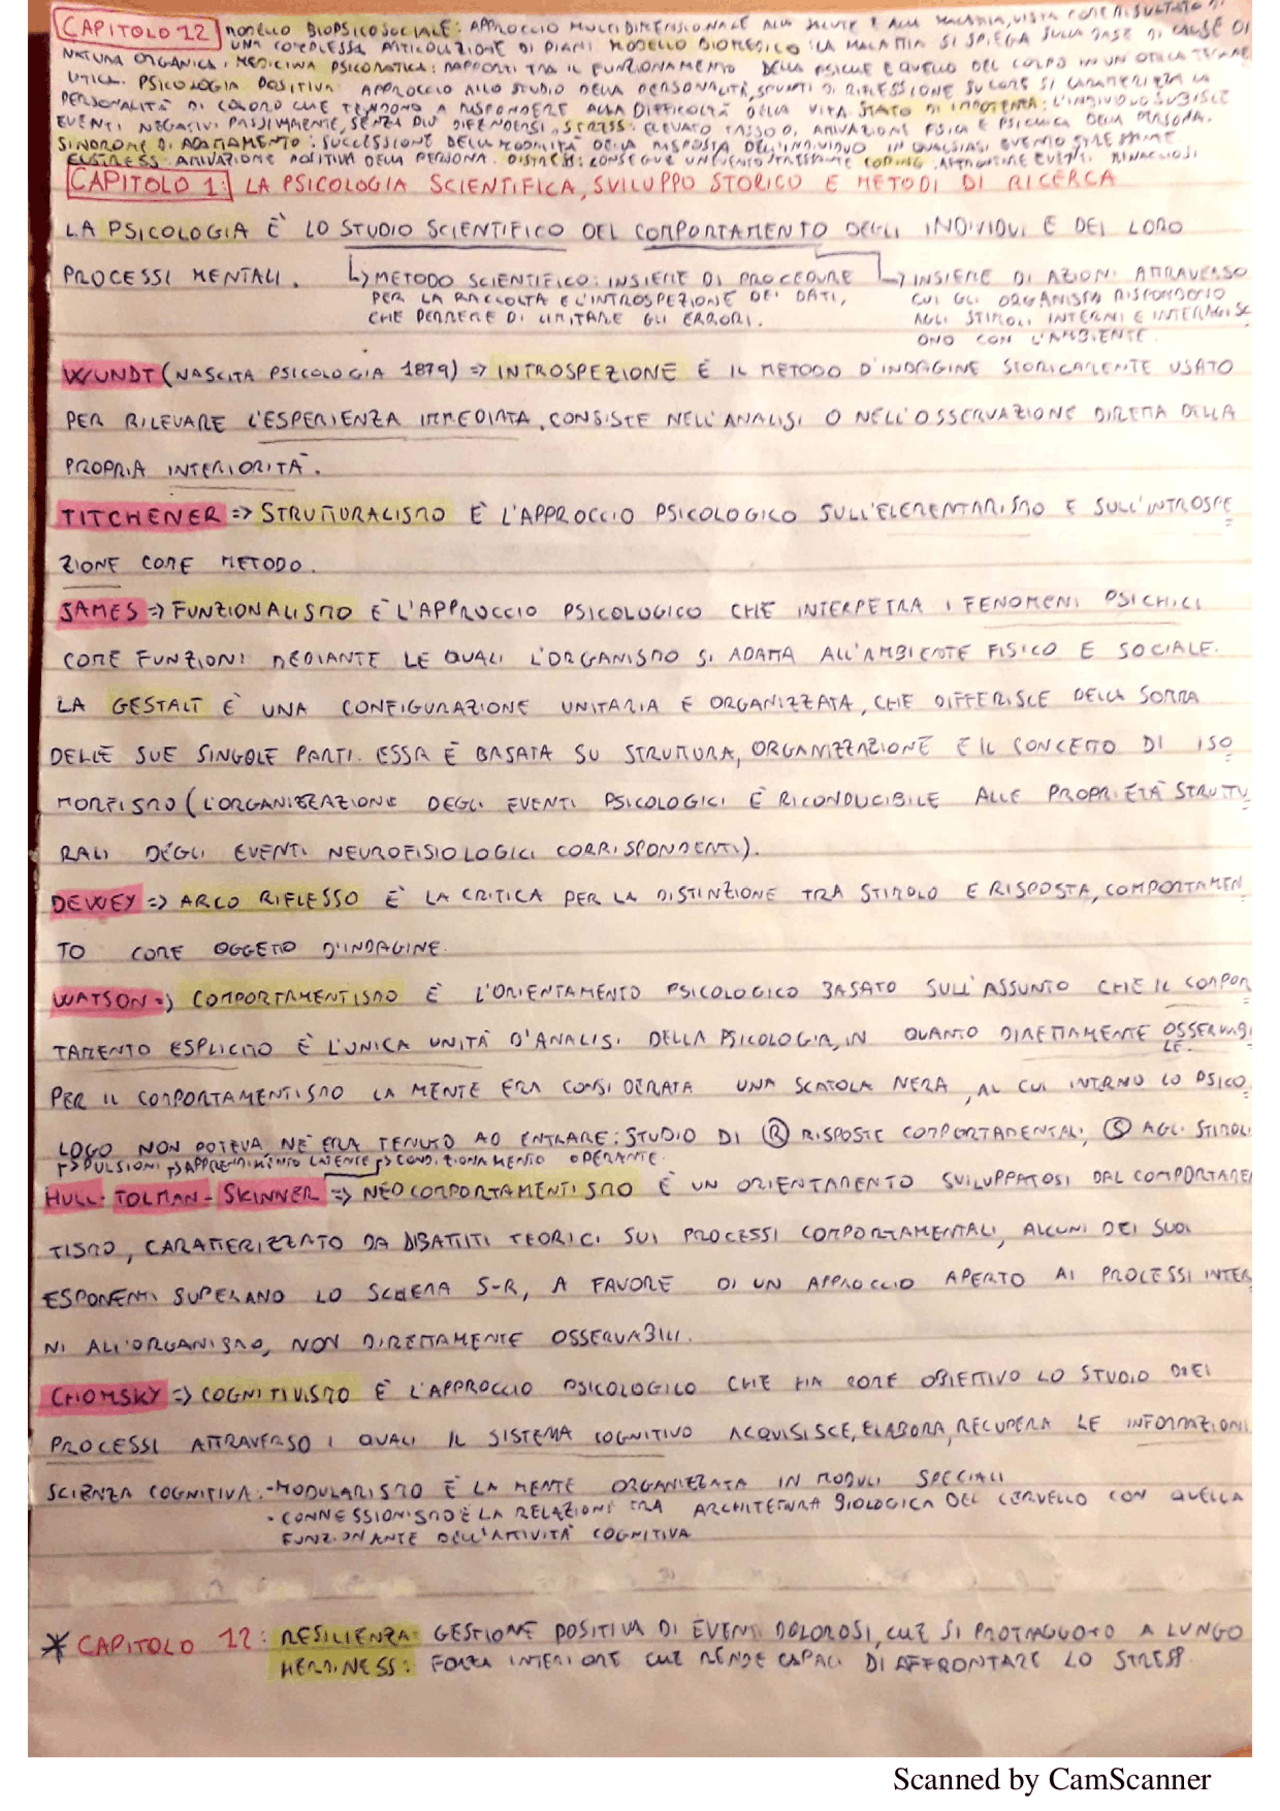 CAPITOLO 12 MODELLO BIOPSICOSOCIALE: APPROCCIO MULTIDIMENSIONALE ALLA SALUTE E ALLA MALATTIA, VISTA COME RISULTATO DI
UNA COMPLESSA ARTICOLAZIONE DI PIANI MODELLO BIOMEDICO: LA MALATTIA SI SPIEGA SULLA BASE DI CAUSE DI
NATURA ORGANICA, MEDICINA PSICOMATICA: RAPPORTI TRA IL FUNZIONAMENTO DELLA PSICHE E QUELLO DEL CORPO IN UN OTTICA
UTICA. PSICOLOGIA POSITIVA: APPROCCIO ALLO STUDIO DELLA PERSONALITÀ, SPUNTI DI RIFLESSIONE SU COME SI CARATTERIZZA LA
PERSONALITÀ DI COLORO CHE TENDONO A RISPONDERE ALLA DIFFICOLTÀ DELLA VITA STATO DI IMPOTENZA: L'INDIVIDUO SUBISCE
EVENTI NEGATIVI PASSIVAMENTE, SENZA PIÙ DIFENDERSI, STRESS: ELEVATO TASSO DI ATTIVAZIONE FISICA E PSICHICA DELLA PERSONA.
SINDROME DI ADATTAMENTO: SUCCESSIONE DELLA MODALITÀ DELLA RISPOSTA DELL'INDIVIDUO IN QUALSIASI EVENTO STRESSANTE
EUSTRESS: ATTIVAZIONE POSITIVA DELLA PERSONA. DISTRESS: CONSEGUE UN EVENTO STRESSANTE COPING: AFFRONTARE EVENTI MINACCIOSI
CAPITOLO 1: LA PSICOLOGIA SCIENTIFICA, SVILUPPO STORICO E METODI DI RICERCA
LA PSICOLOGIA È LO STUDIO SCIENTIFICO DEL COMPORTAMENTO DEGLI INDIVIDUI E DEI LORO
PROCESSI MENTALI. ↳ METODO SCIENTIFICO: INSIEME DI PROCEDURE ↳ INSIEME DI AZIONI ATTRAVERSO
PER LA RACCOLTA E L'INTROSPEZIONE DEI DATI, CUI GLI ORGANISMI RISPONDONO
CHE PERMETTE DI LIMITARE GLI ERRORI. AGLI STIMOLI INTERNI E INTERAGISC
ONO CON L'AMBIENTE.
WUNDT (NASCITA PSICOLOGIA 1879) => INTROSPEZIONE È IL METODO D'INDAGINE STORICAMENTE USATO
PER RILEVARE L'ESPERIENZA IMMEDIATA, CONSISTE NELL'ANALISI O NELL'OSSERVAZIONE DIRETTA DELLA
PROPRIA INTERIORITÀ.
TITCHENER => STRUTTURALISMO È L'APPROCCIO PSICOLOGICO SULL'ELEMENTARISMO E SULL'INTROSPE
ZIONE COME METODO.
JAMES => FUNZIONALISMO È L'APPROCCIO PSICOLOGICO CHE INTERPETRA I FENOMENI PSICHICI
COME FUNZIONI MEDIANTE LE QUALI L'ORGANISMO SI ADATTA ALL'AMBIENTE FISICO E SOCIALE.
LA GESTALT È UNA CONFIGURAZIONE UNITARIA E ORGANIZZATA, CHE DIFFERISCE DELLA SOMMA
DELLE SUE SINGOLE PARTI. ESSA È BASATA SU STRUTTURA, ORGANIZZAZIONE E IL CONCETTO DI ISO
MORFISMO (L'ORGANIZZAZIONE DEGLI EVENTI PSICOLOGICI È RICONDUCIBILE ALLE PROPRIETÀ STRUTTU
RALI DEGLI EVENTI NEUROFISIOLOGICI CORRISPONDENTI).
DEWEY => ARCO RIFLESSO È LA CRITICA PER LA DISTINZIONE TRA STIMOLO E RISPOSTA, COMPORTAMEN
TO COME OGGETTO D'INDAGINE.
WATSON => COMPORTAMENTISMO È L'ORIENTAMENTO PSICOLOGICO BASATO SULL'ASSUNTO CHE IL COMPOR
TAMENTO ESPLICITO È L'UNICA UNITÀ D'ANALISI DELLA PSICOLOGIA, IN QUANTO DIRETTAMENTE OSSERVABI
LE.
PER IL COMPORTAMENTISMO LA MENTE ERA CONSIDERATA UNA SCATOLA NERA, AL CUI INTERNO LO PSICO
LOGO NON POTEVA NÈ ERA TENUTO AD ENTRARE: STUDIO DI (R) RISPOSTE COMPORTAMENTALI, (S) AGLI STIMOLI
↱ PULSIONI ↱ APPRENDIMENTO LATENTE ↱ CONDIZIONAMENTO OPERANTE.
HULL - TOLMAN - SKINNER => NEOCOMPORTAMENTISMO È UN ORIENTAMENTO SVILUPPATOSI DAL COMPORTAMEN
TISMO, CARATTERIZZATO DA DIBATTITI TEORICI SUI PROCESSI COMPORTAMENTALI, ALCUNI DEI SUOI
ESPONENTI SUPERANO LO SCHEMA S-R, A FAVORE DI UN APPROCCIO APERTO AI PROCESSI INTER
NI ALL'ORGANISMO, NON DIRETTAMENTE OSSERVABILI.
CHOMSKY => COGNITIVISMO È L'APPROCCIO PSICOLOGICO CHE HA COME OBIETTIVO LO STUDIO DEI
PROCESSI ATTRAVERSO I QUALI IL SISTEMA COGNITIVO ACQUISISCE, ELABORA, RECUPERA LE INFORMAZIONI
SCIENZA COGNITIVA: - MODULARISMO È LA MENTE ORGANIZZATA IN MODULI SPECIALI
- CONNESSIONISMO È LA RELAZIONE TRA ARCHITETTURA BIOLOGICA DEL CERVELLO CON QUELLA
FUNZIONANTE DELL'ATTIVITÀ COGNITIVA
* CAPITOLO 12: RESILIENZA: GESTIONE POSITIVA DI EVENTI DOLOROSI, CHE SI PROTRAGGONO A LUNGO
HERDINESS: FORZA INTERIORE CHE RENDE CAPACI DI AFFRONTARE LO STRESS.
Scanned by CamScanner